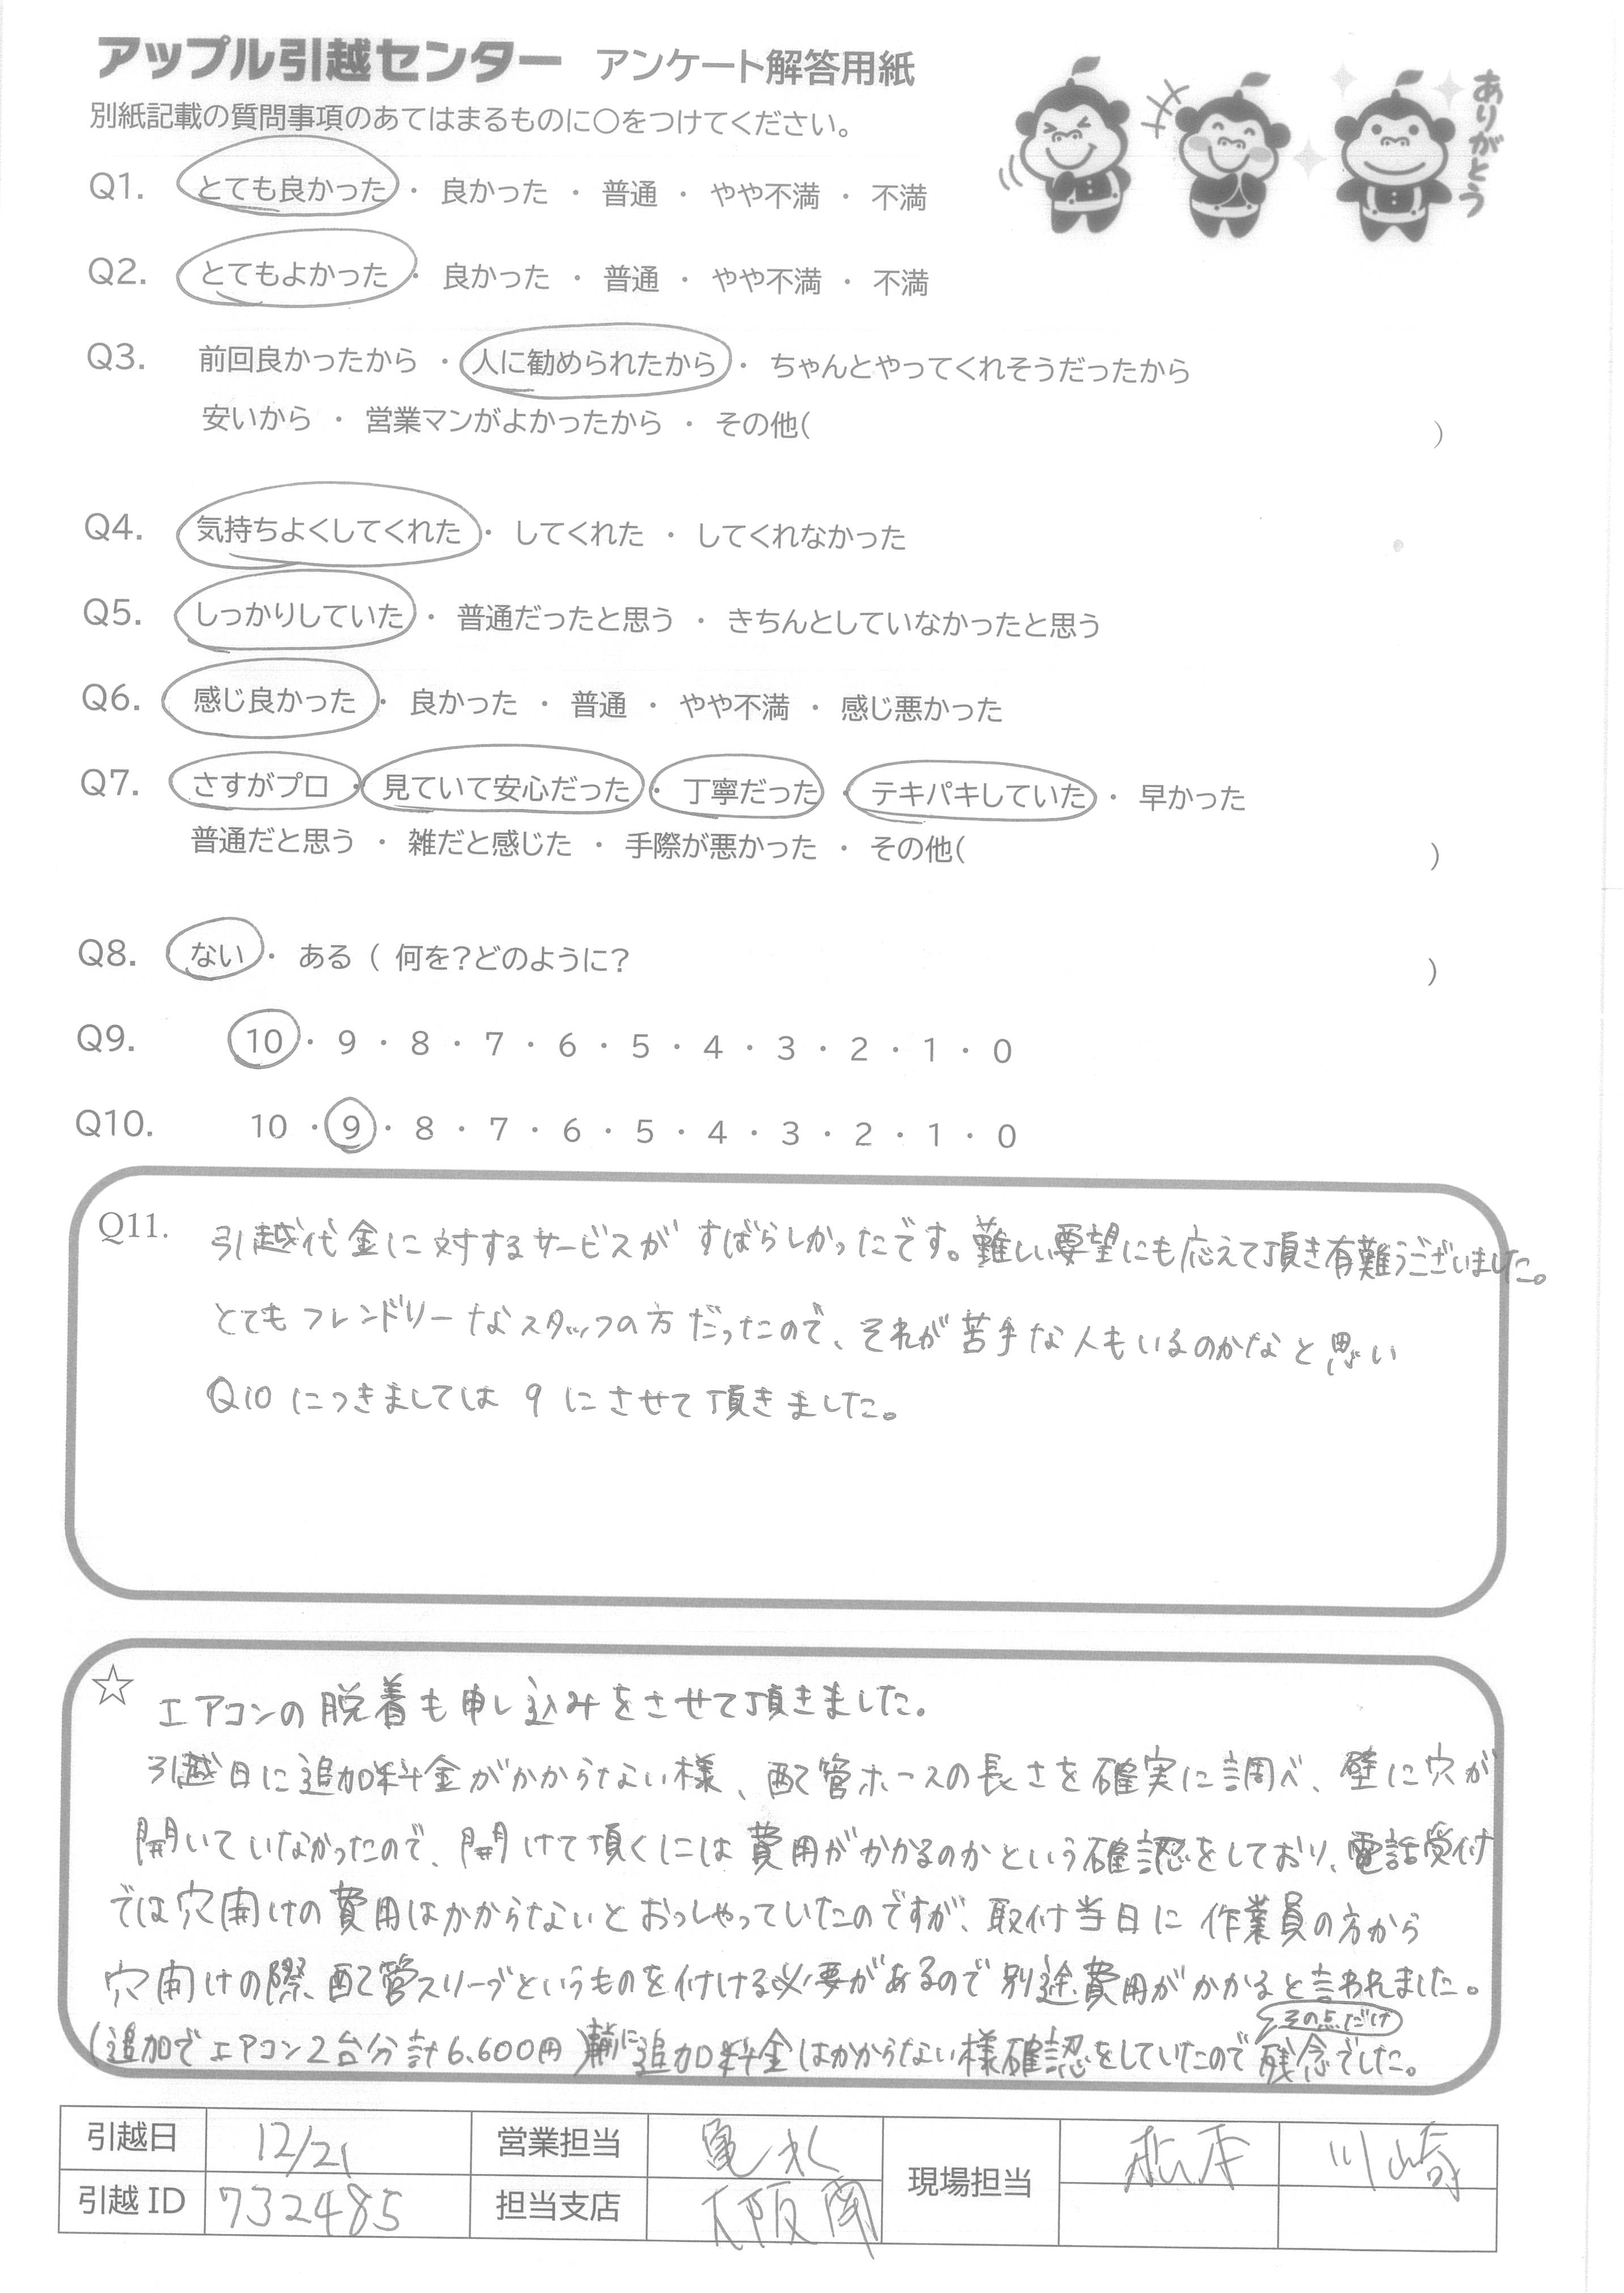 アップル引越センター アンケート解答用紙
ありがとう
別紙記載の質問事項のあてはまるものに○をつけてください。
Q1. とても良かった ・ 良かった ・ 普通 ・ やや不満 ・ 不満
Q2. とてもよかった ・ 良かった ・ 普通 ・ やや不満 ・ 不満
Q3. 前回良かったから ・ 人に勧められたから ・ ちゃんとやってくれそうだったから
安いから ・ 営業マンがよかったから ・ その他( )
Q4. 気持ちよくしてくれた ・ してくれた ・ してくれなかった
Q5. しっかりしていた ・ 普通だったと思う ・ きちんとしていなかったと思う
Q6. 感じ良かった ・ 良かった ・ 普通 ・ やや不満 ・ 感じ悪かった
Q7. さすがプロ ・ 見ていて安心だった ・ 丁寧だった ・ テキパキしていた ・ 早かった
普通だと思う ・ 雑だと感じた ・ 手際が悪かった ・ その他( )
Q8. ない ・ ある ( 何を?どのように? )
Q9. 10 ・ 9 ・ 8 ・ 7 ・ 6 ・ 5 ・ 4 ・ 3 ・ 2 ・ 1 ・ 0
Q10. 10 ・ 9 ・ 8 ・ 7 ・ 6 ・ 5 ・ 4 ・ 3 ・ 2 ・ 1 ・ 0
Q11. 引越代金に対するサービスがすばらしかったです。難しい要望にも応えて頂き有難うございました。
とてもフレンドリーなスタッフの方だったので、それが苦手な人もいるのかなと思い
Q10につきましては9にさせて頂きました。
☆ エアコンの脱着も申し込みをさせて頂きました。
引越日に追加料金がかからない様、配管ホースの長さを確実に調べ、壁に穴が
開いていなかったので、開けて頂くには費用がかかるのかという確認をしており、電話受付
では穴開けの費用はかからないとおっしゃっていたのですが、取付当日に作業員の方から
穴開けの際、配管スリーブというものを付ける必要があるので別途費用がかかると言われました。
その点だけ
(追加でエアコン2台分計6,600円) 追加料金はかからない様確認をしていたので残念でした。
引越日 12/21 営業担当 亀水 現場担当 松本 川崎
引越ID 732485 担当支店 大阪南